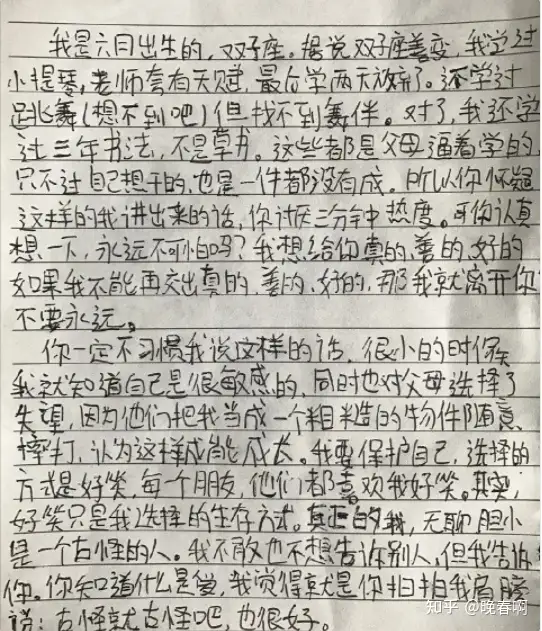 我是六月出生的，双子座。据说双子座善变，我学过
小提琴，老师夸有天赋，最后学两天放弃了。还学过
跳舞（想不到吧）但找不到舞伴。对了，我还学
过三年书法，不是草书。这些都是父母逼着学的，
只不过自己想干的，也是一件都没有成。所以你怀疑
这样的我讲出来的话，你讨厌三分钟热度。可你认真
想一下，永远不可怕吗？我想给你真的、善的、好的
如果我不能再交出真的、善的、好的，那我就离开你
不要永远。
你一定不习惯我说这样的话，很小的时候
我就知道自己是很敏感的，同时也对父母选择了
失望，因为他们把我当成一个粗糙的物件随意
摔打，认为这样成能成长。我要保护自己，选择的
方式是好笑，每一个朋友，他们都喜欢我好笑。其实，
好笑只是我选择的生存方式。真正的我，无聊胆小
是一个古怪的人。我不敢也不想告诉别人，但我告诉
你。你知道什么是爱，我觉得就是你拍拍我肩膀
说：古怪就古怪吧，也很好。
知乎 @晚春啊